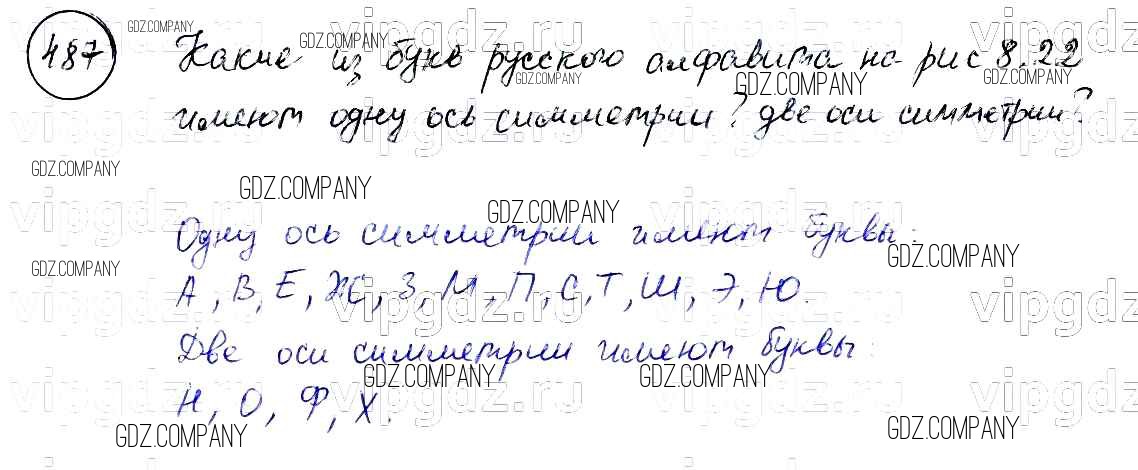 487 Какие из букв русского алфавита на рис 8.22
имеют одну ось симметрии? две оси симметрии?
Одну ось симметрии имеют буквы:
А, В, Е, Ж, З, М, П, С, Т, Ш, Э, Ю.
Две оси симметрии имеют буквы:
Н, О, Ф, Х.
GDZ.COMPANY
vipgdz.ru